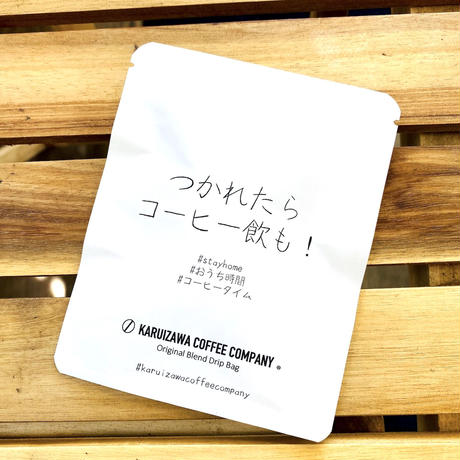 つかれたら
コーヒー飲も！
#stayhome
#おうち時間
#コーヒータイム
KARUIZAWA COFFEE COMPANY®
Original Blend Drip Bag
#karuizawacoffeecompany